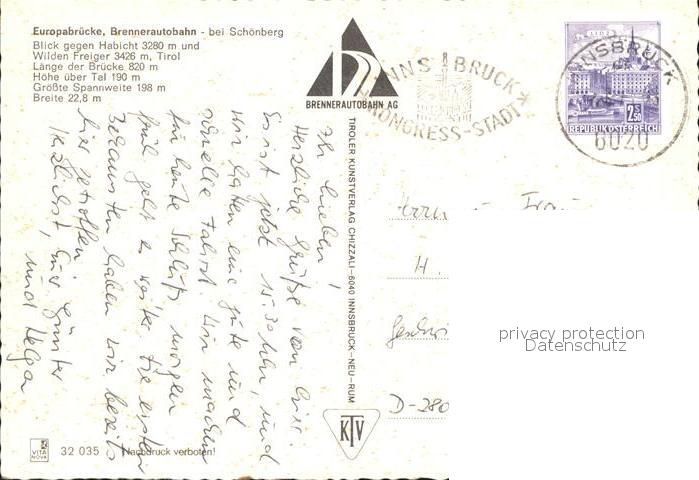 Europabrücke, Brennerautobahn - bei Schönberg
Blick gegen Habicht 3280 m und
Wilden Freiger 3426 m, Tirol
Länge der Brücke 820 m
Höhe über Tal 190 m
Größte Spannweite 198 m
Breite 22,8 m
BRENNERAUTOBAHN AG
INNSBRUCK
KONGRESS-STADT
INNSBRUCK
6020
2.S50
REPUBLIK ÖSTERREICH
TIROLER KUNSTVERLAG CHIZZALI-6040 INNSBRUCK-NEU-RUM
Ihr Lieben!
Herzliche Grüße vom
Es ist jetzt 15.30 Uhr, und
wir hatten eine gute und
schnelle Fahrt. Wir machen
für heute Schluß, morgen
früh geht es weiter. Die ersten
haben wir bereits
hier getroffen.
Herzlichst, Eure Günter
und Helga
H.
D-280
privacy protection
Datenschutz
KTV
VITA
NOVA
32 035
Nachdruck verboten!